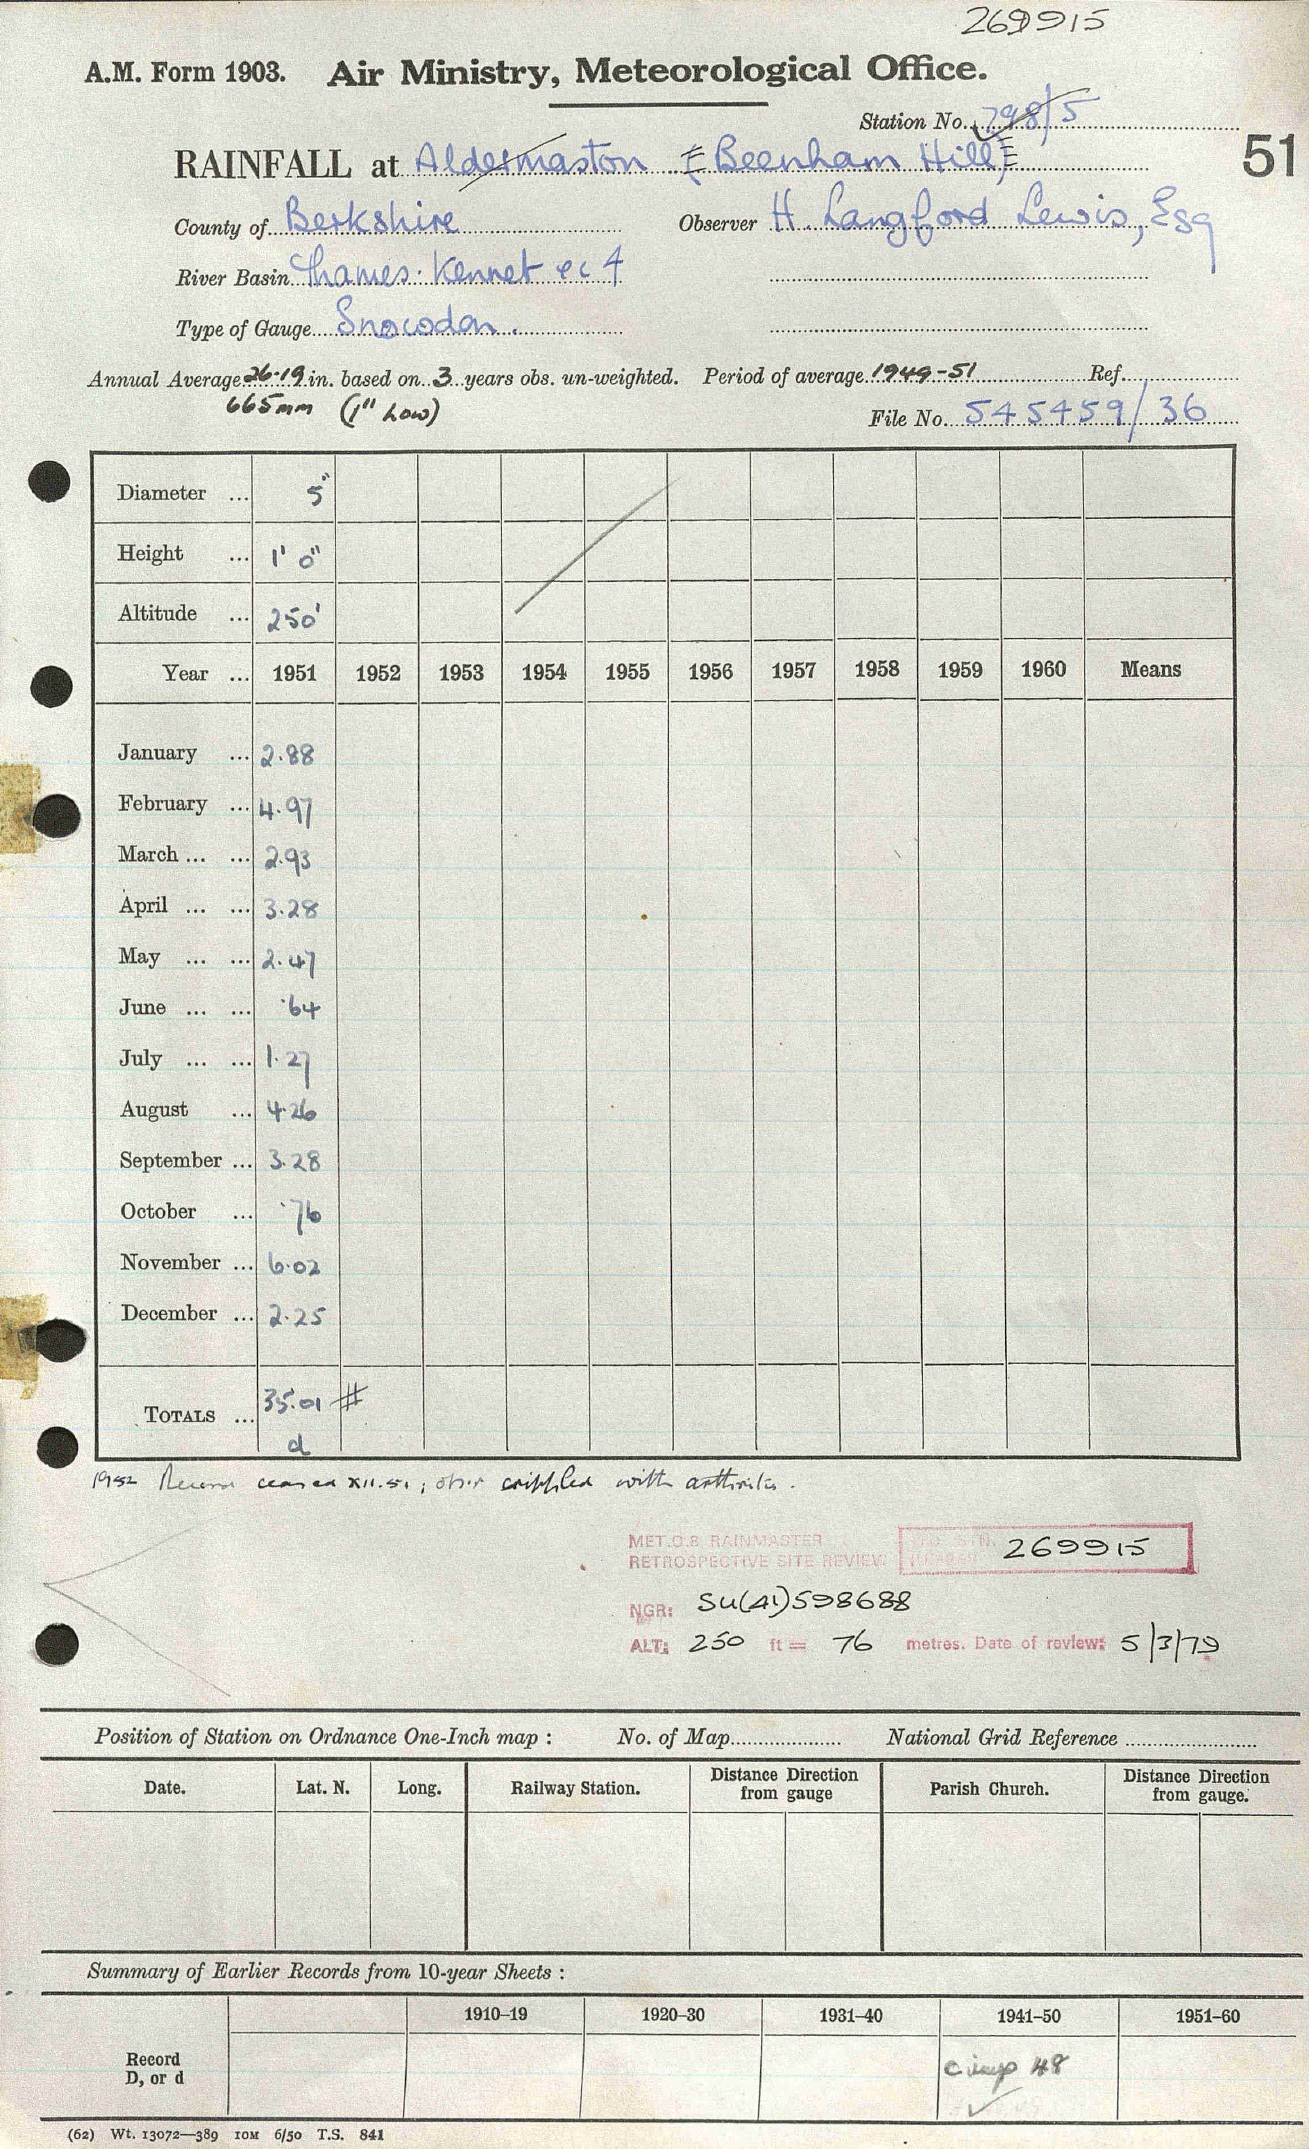 269915
A.M. Form 1903. Air Ministry, Meteorological Office.
Station No. 798/5
RAINFALL at Aldermaston (Beenham Hill) 51
County of Berkshire Observer H. Langford Lewis, Esq
River Basin Thames: Kennet ec 4
Type of Gauge Snowdon.
Annual Average 26.19 in. based on 3 years obs. un-weighted. Period of average 1949-51 Ref.
665mm (1" Low)
File No. 545459/36
Diameter ... 5"
Height ... 1' 0"
Altitude ... 250'
Year ... 1951 1952 1953 1954 1955 1956 1957 1958 1959 1960 Means
January ... 2.88
February ... 4.97
March ... ... 2.93
April ... ... 3.28
May ... ... 2.47
June ... ... .64
July ... ... 1.27
August ... 4.26
September ... 3.28
October ... .76
November ... 6.02
December ... 2.25
TOTALS ... 35.01 #
d
1952 Record ceased XII.51; obsr crippled with arthritis.
MET.O.8 RAINMASTER
RETROSPECTIVE SITE REVIEW 269915
NGR: SU(41)598688
ALT: 250 ft = 76 metres. Date of review: 5/3/79
Position of Station on Ordnance One-Inch map : No. of Map National Grid Reference
Date. Lat. N. Long. Railway Station. Distance Direction from gauge Parish Church. Distance Direction from gauge.
Summary of Earlier Records from 10-year Sheets :
1910–19 1920–30 1931–40 1941–50 1951–60
Record
D, or d
48
(62) Wt. 13072—389 10M 6/50 T.S. 841